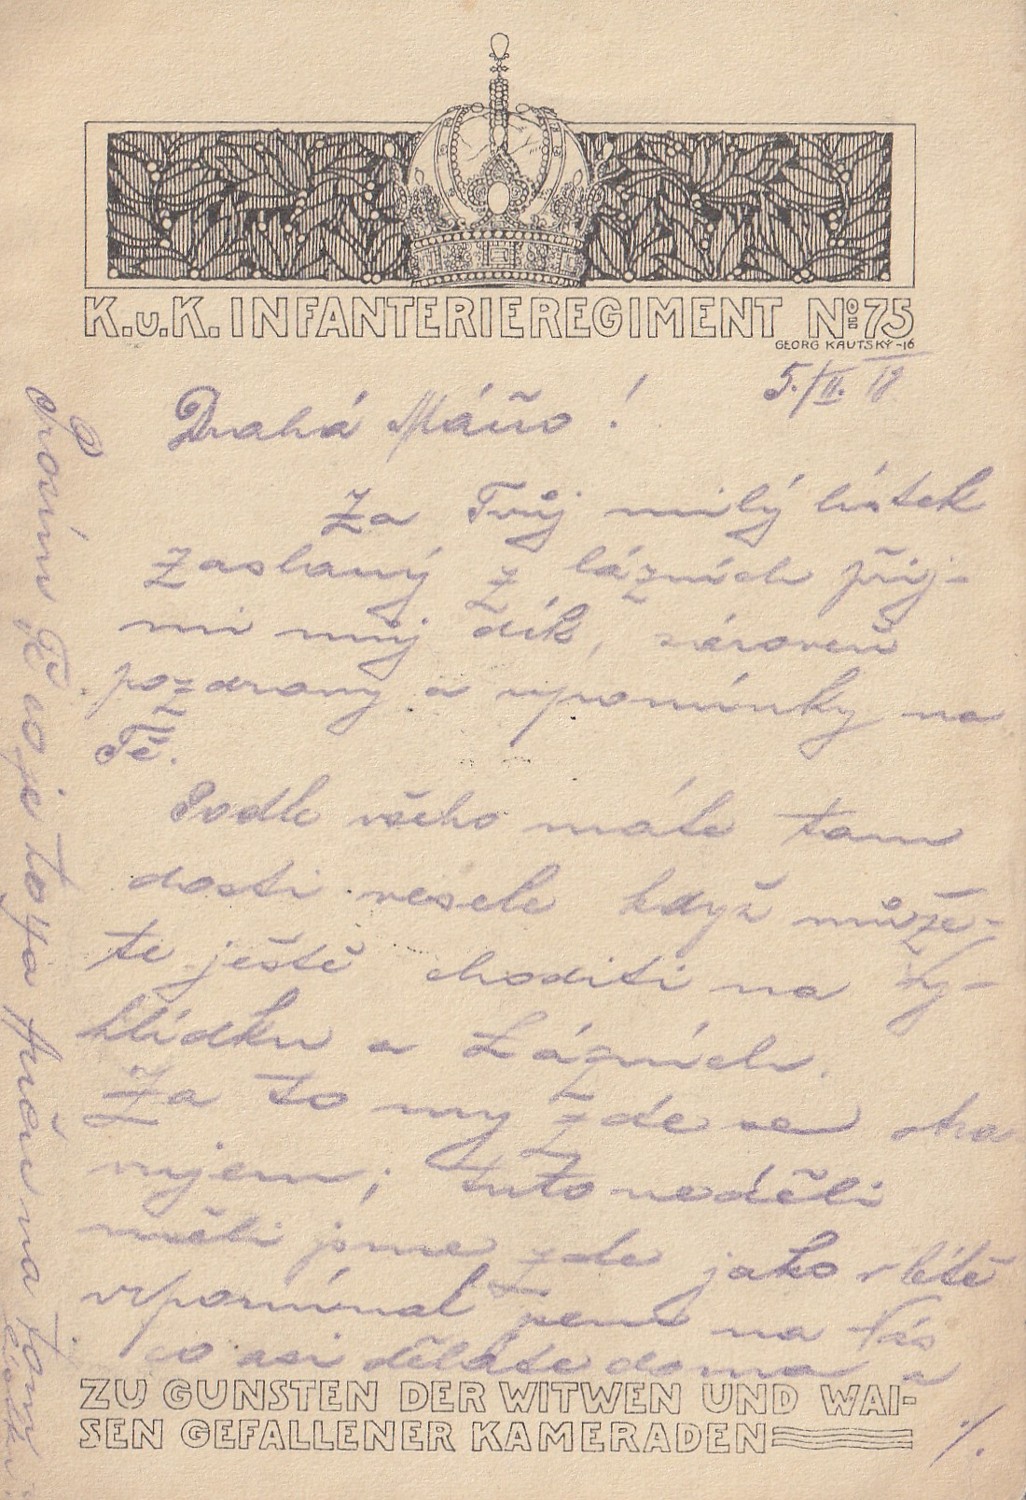 K.u.K. INFANTERIEREGIMENT No 75
GEORG KAUTSKÝ-16
5./II. 18
Drahá Máňo!
Za Tvůj milý lístek
zaslaný z lázních přij-
mi můj dík, zároveň
pozdravy a vpomínky na
Tě.
Podle všeho máte tam
dosti vesele když může-
te ještě choditi na Vy-
hlídku a Lázních.
Za to my zde se
tuto neděli
měli jsme zde jako v létě
vzpomínal jsem na Vás
co asi děláte doma a
ZU GUNSTEN DER WITWEN UND WAI-
SEN GEFALLENER KAMERADEN
./.
Prosím Tě co je to za na tom